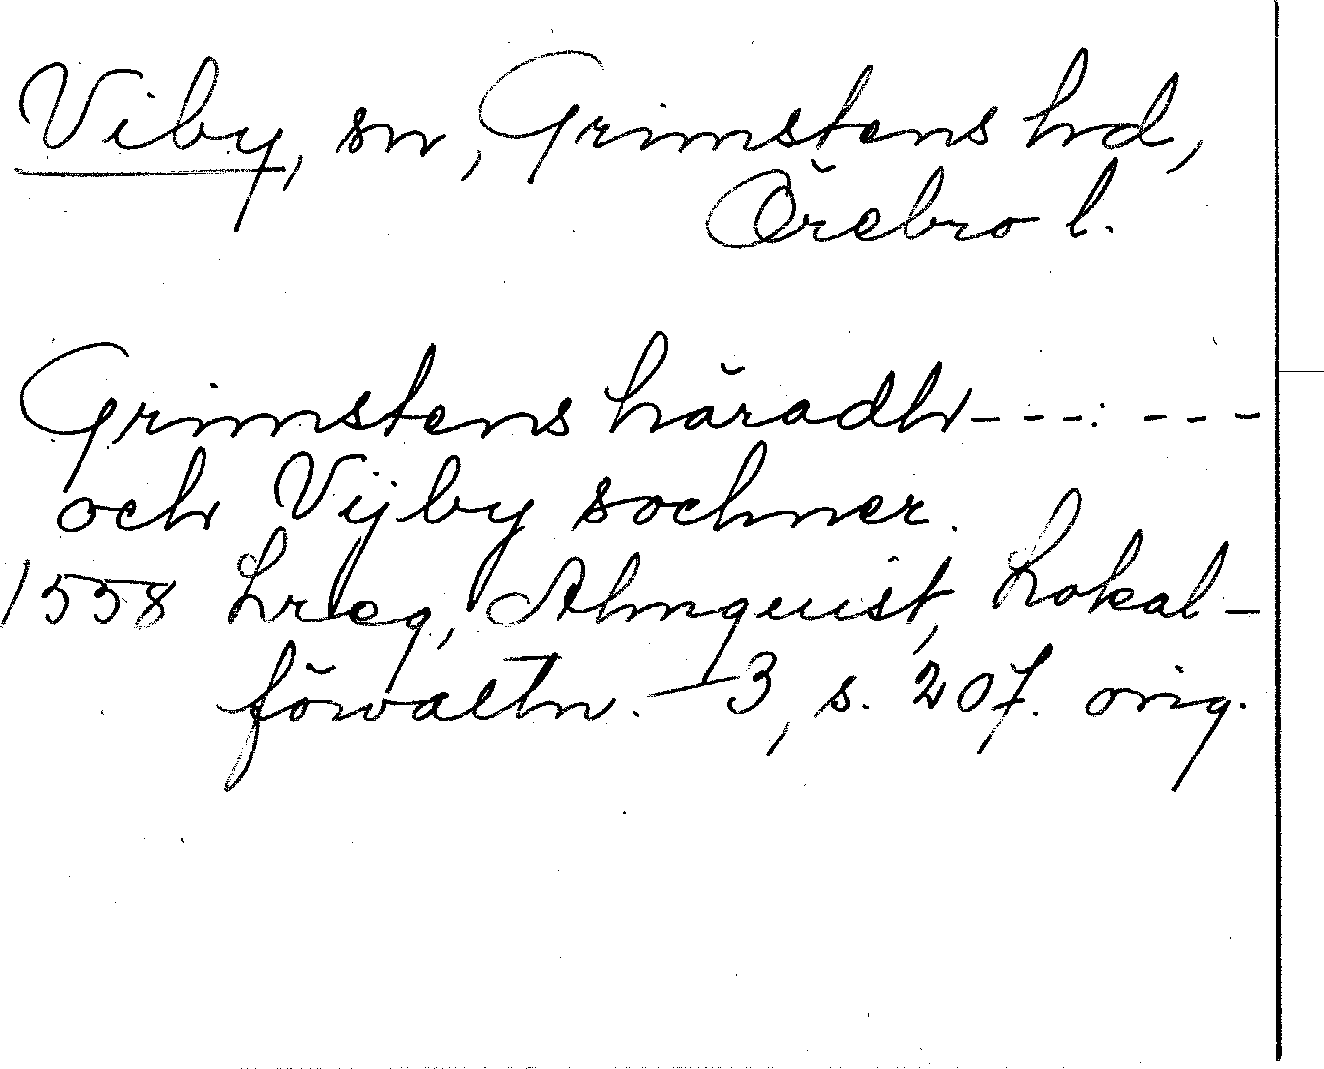 Viby, sn, Grimstens hd,
Örebro l.
Grimstens häradh - - - : - - -
och Vijby sochner.
1558 hreg, Almquist, Lokal-
förvaltn. I 3, s. 207. orig.